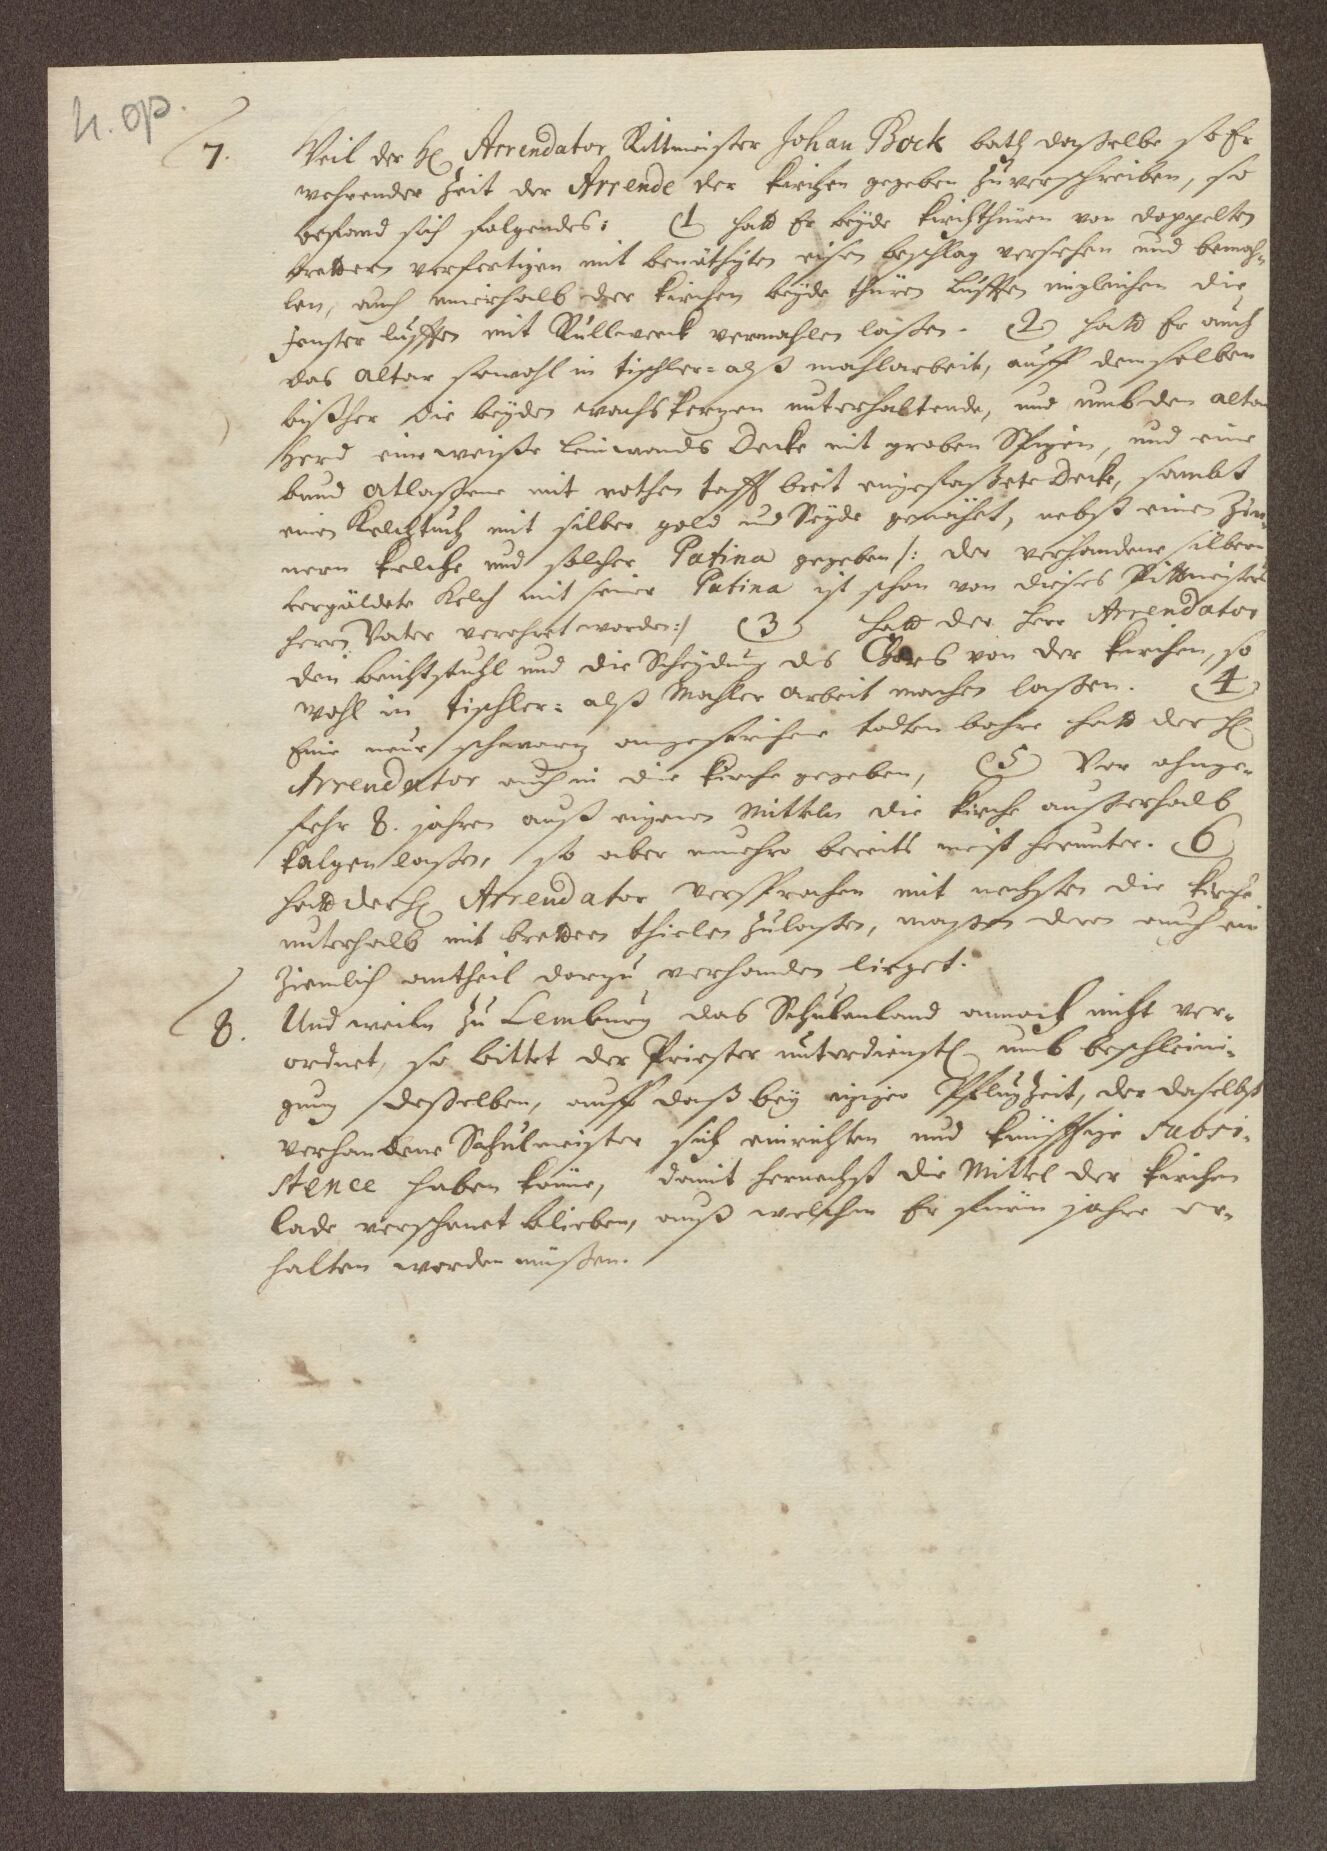 n. op.
7. Weil der H. Arrendator Rittmeister Johan Bock bath dasselbe so Er
wehrender Zeit der Arrende der Kirchen gegeben zuverschreiben, so
befand sich folgendes: (1) hatt Er beyde Kirchthüren von doppelten
brettern verfertigen mit benöthigten eisen beschlag versehen und bemah-
len, auch innerhalb der Kirchen beyde thüren Lufften ingleichen die
Fenster lufften mit Rullwerck vermahlen laßen. (2) hatt Er auch
das Altar sowohl in tischler- alß mahlarbeit, auff demselben
bißher die beyden wachskertzen unterhaltende, und umb den altar
herd eine weiße leinwands Decke mit groben Spitzen, und eine
bund Atlaßene mit rothen taff breit eingefaßete Decke, sambt
einen Kelchtuch mit silber gold und Seyde genähet, nebst einen Zin-
nern Kelche und solcher Patina gegeben /: der verhandene silbern
vergüldete Kelch mit seiner Patina ist schon von dieses Rittmeisters
Herrn Vater verehret worden :/ (3) hatt der Herr Arrendator
den beichtstuhl und die Scheydung des Chores von der Kirchen, so
wohl in tischler- alß Mahler arbeit machen laßen. (4)
Eine neue schwartz angestrichene todten bahre hatt der H.
Arrendator auch in die Kirche gegeben, (5) Vor ohnge-
fehr 8. jahren auß eigenen Mitteln die Kirche außerhalb
kalgen laßen, so aber nunehro bereits meist herunter. (6)
hatt der H. Arrendator versprochen mit nechsten die Kirche
unterhalb mit brettern thielen zulaßen, maßen dan auch ein
ziemlich antheil darzu verhanden lieget.
8. Und weiln zu Lemburg das Schulenland annoch nicht ver-
ordnet, so bittet der Priester unterdienstl. umb beschleini-
gung deßelben, auff daß bey itziger Pflugzeit, der daselbst
verhandene Schulmeister sich einrichten und künfftige subsi-
stence haben könne, damit hernechst die Mittel der Kirchen
lade verschonet blieben, auß welchen Er heüer jahre er-
halten werden müßen.